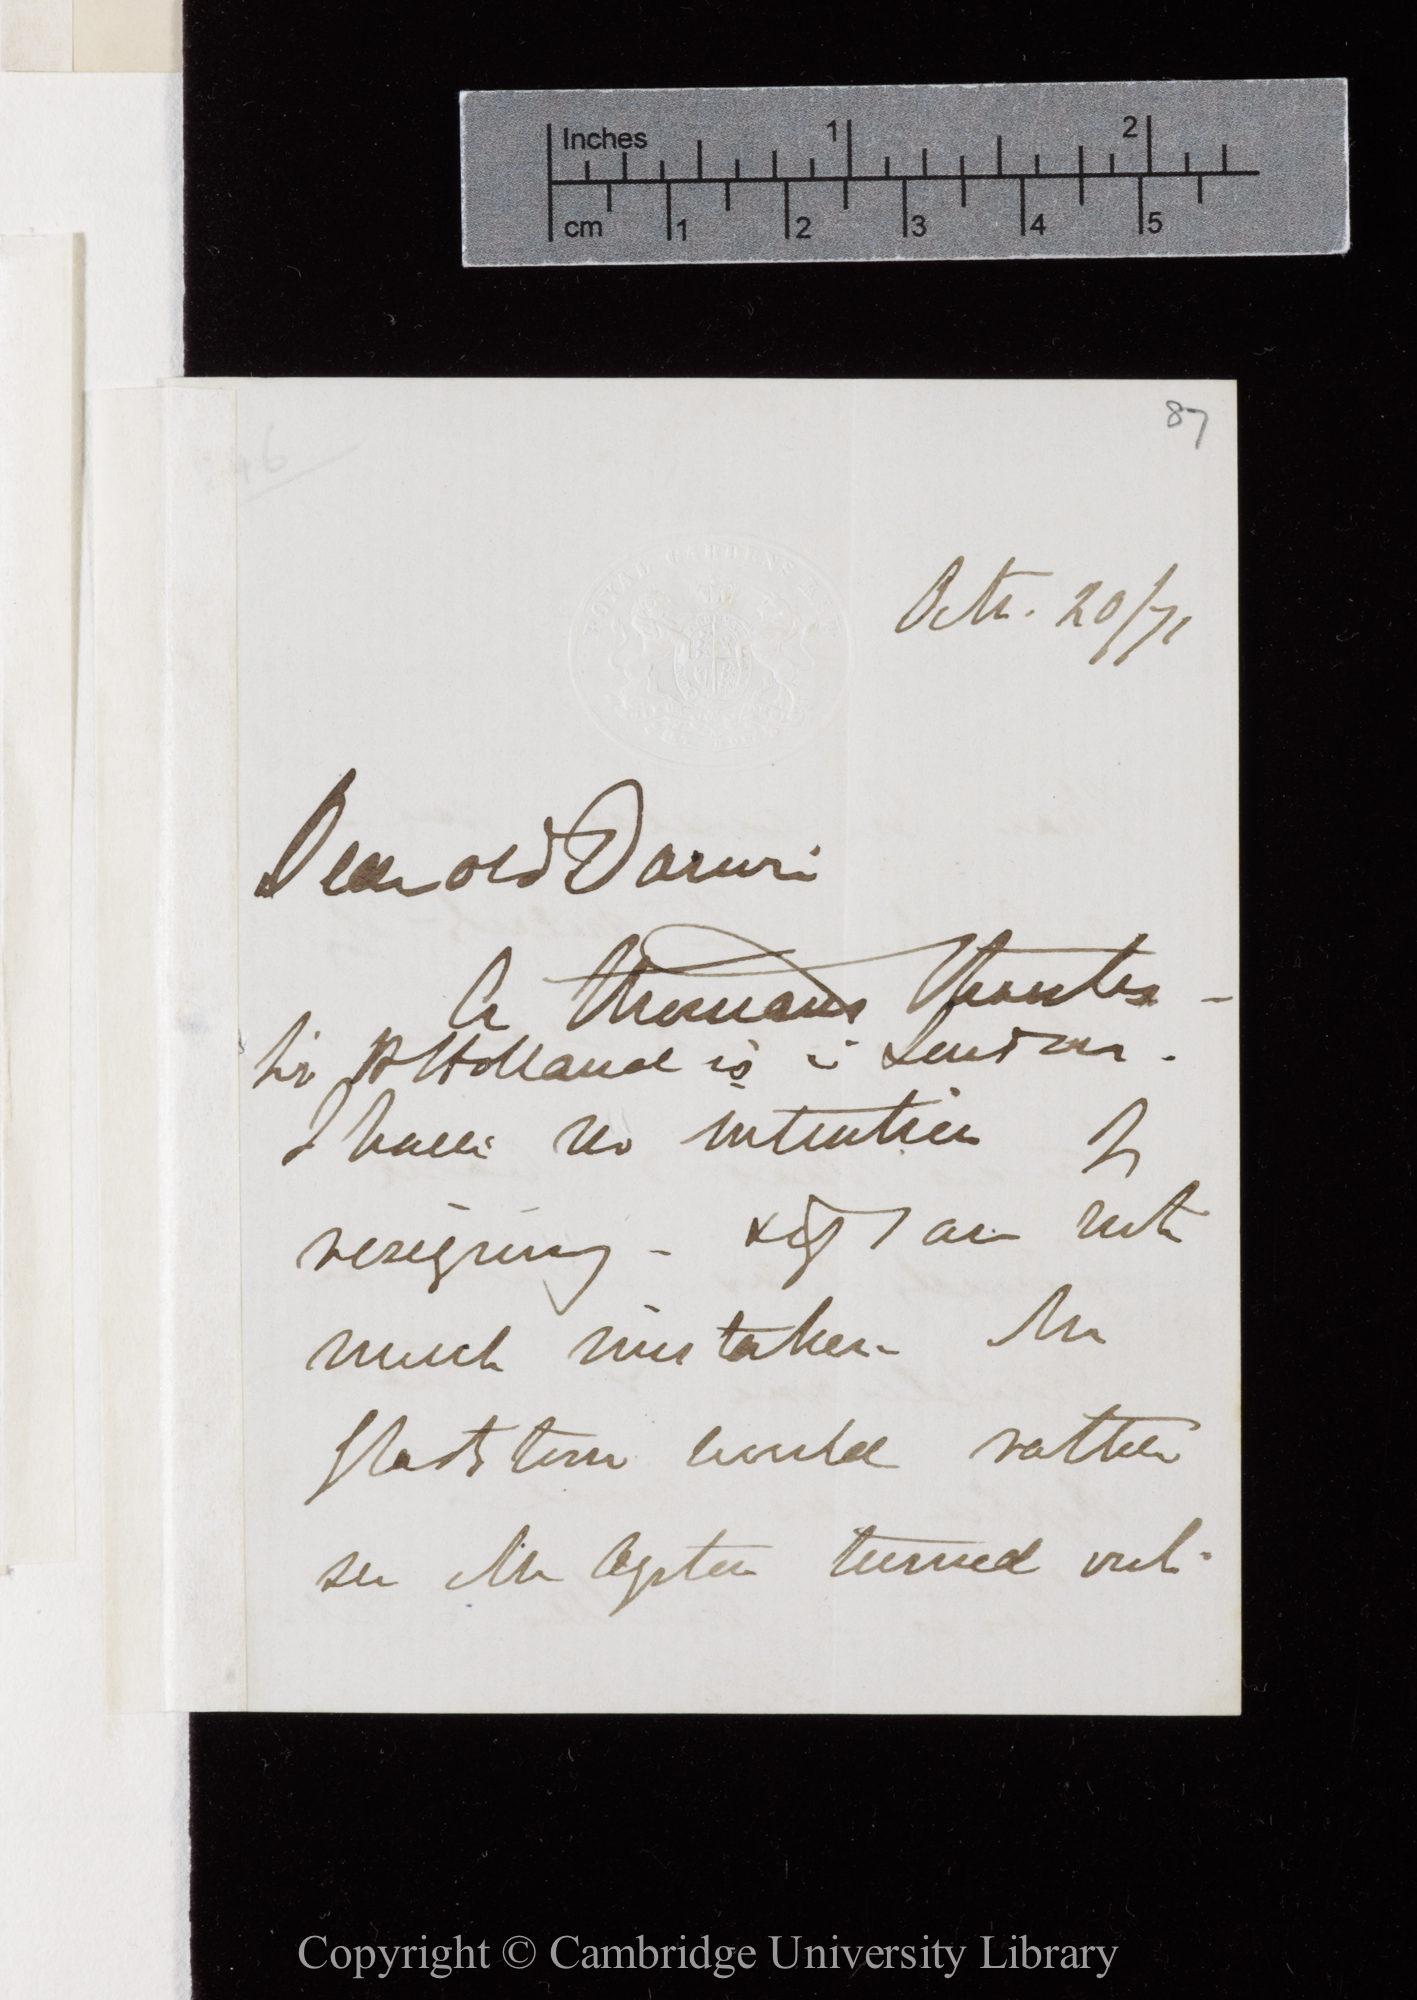 Inches 1 2
cm 1 2 3 4 5
87
ROYAL GARDENS KEW
Octr. 20/71
Dear old Darwin
A thousand thanks –
Sir H Holland is in London.
I have no intention of
resigning – & if I am not
much mistaken Mr
Gladstone would rather
see Mr Ayrton turned out.
Copyright © Cambridge University Library